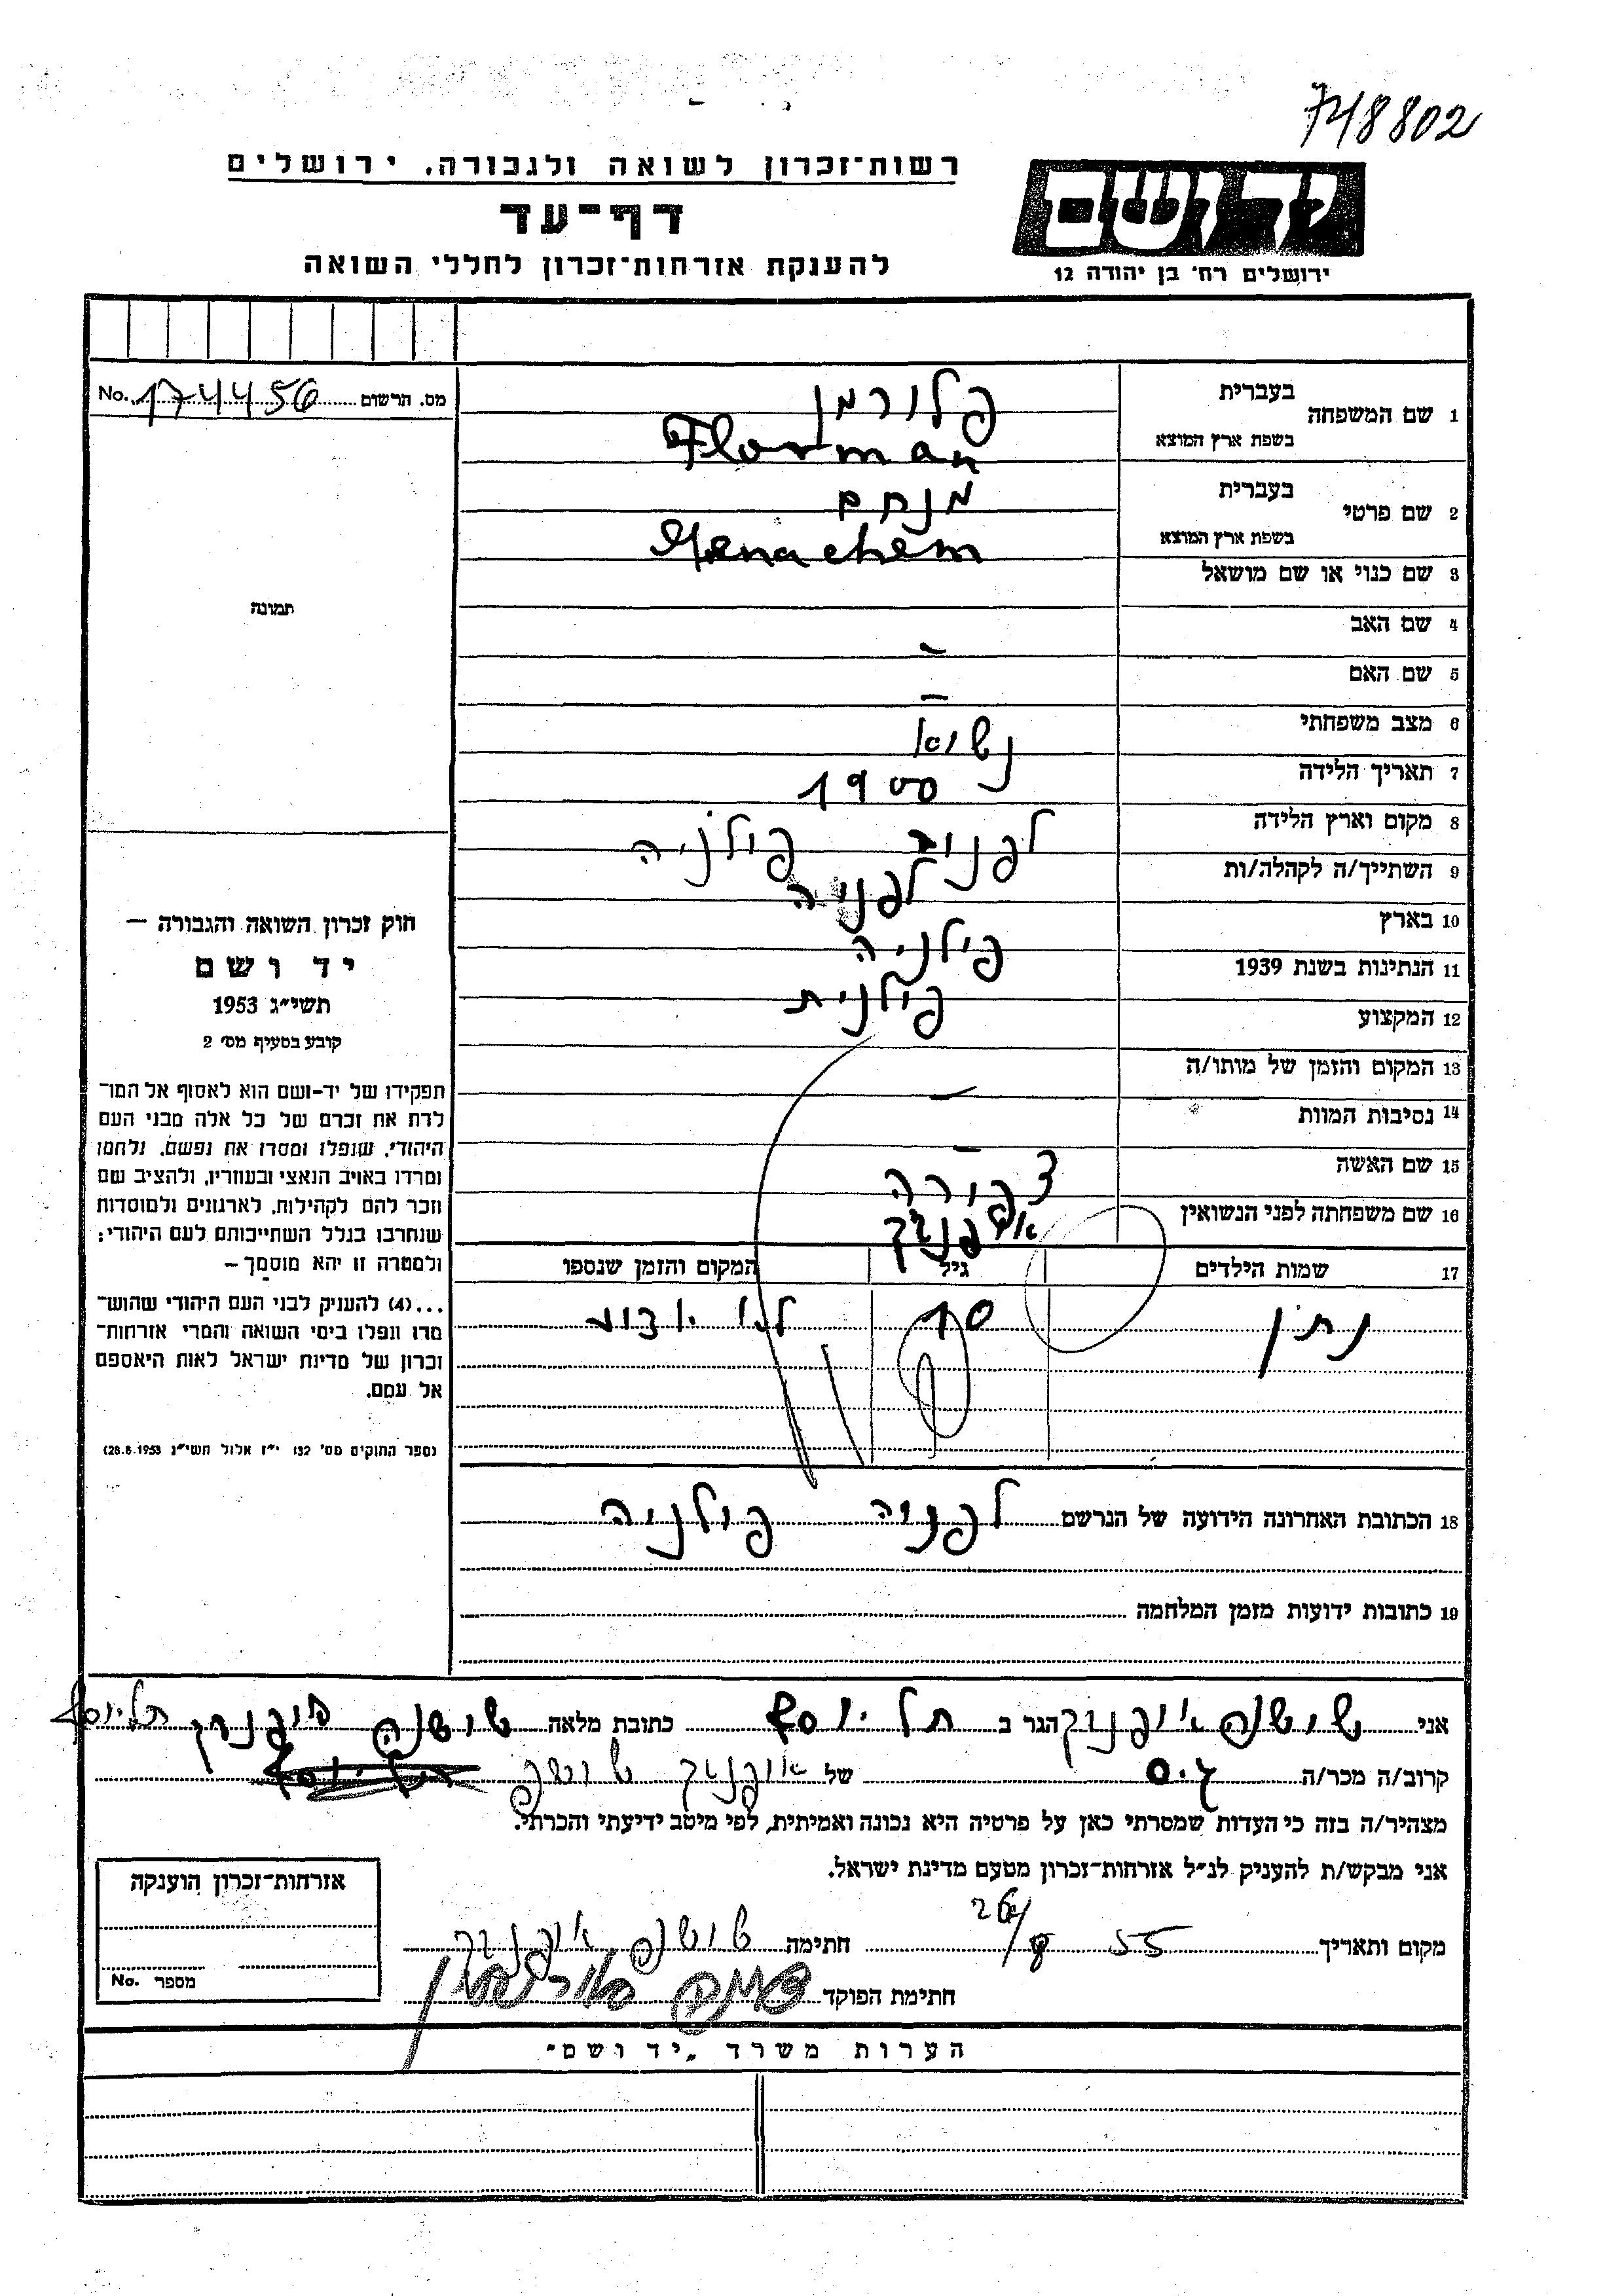 748802
רשות־זכרון לשואה ולגבורה, ירושלים
דף־עד
להענקת אזרחות־זכרון לחללי השואה
יד ושם
ירושלים רח' בן יהודה 12
מס. הרשום 174456 No.
תמונה
1 שם המשפחה בעברית פלורמן
בשפת ארץ המוצא Florman
2 שם פרטי בעברית מנחם
בשפת ארץ המוצא Menachem
3 שם כנוי או שם מושאל
4 שם האב –
5 שם האם –
6 מצב משפחתי נשוא
7 תאריך הלידה 1900
8 מקום וארץ הלידה פולניה
9 השתייך/ה לקהלה/ות לפניה
10 בארץ פולניה
11 הנתינות בשנת 1939 פולנית
12 המקצוע
13 המקום והזמן של מותו/ה –
14 נסיבות המוות –
15 שם האשה צפורה
16 שם משפחתה לפני הנשואין
17 שמות הילדים גיל המקום והזמן שנספו
נתן 10 לא ידוע
18 הכתובת האחרונה הידועה של הנרשם לפניה פולניה
19 כתובות ידועות מזמן המלחמה
חוק זכרון השואה והגבורה –
יד ושם
תשי״ג 1953
קובע בסעיף מס׳ 2
תפקידו של יד-ושם הוא לאסוף אל המו־
לדת את זכרם של כל אלה מבני העם
היהודי, שנפלו ומסרו את נפשם, נלחמו
ומרדו באויב הנאצי ובעוזריו, ולהציב שם
וזכר להם לקהילות, לארגונים ולמוסדות
שנחרבו בגלל השתייכותם לעם היהודי;
ולמטרה זו יהא מוסמך –
...(4) להעניק לבני העם היהודי שהוש־
מדו ונפלו בימי השואה והמרי אזרחות־
זכרון של מדינת ישראל לאות היאספם
אל עמם.
(ספר החוקים מס׳ 132 י״ז אלול תשי״ג 28.8.1953)
אני שושנה הגר ב תל יוסף כתובת מלאה שושנה תל יוסף
קרוב/ה מכר/ה של שושנה
מצהיר/ה בזה כי העדות שמסרתי כאן על פרטיה היא נכונה ואמיתית, לפי מיטב ידיעתי והכרתי.
אני מבקש/ת להעניק לנ״ל אזרחות־זכרון מטעם מדינת ישראל.
מקום ותאריך 26/8 55 חתימה שושנה
חתימת הפוקד
אזרחות־זכרון הוענקה
מספר No.
הערות משרד „יד ושם״